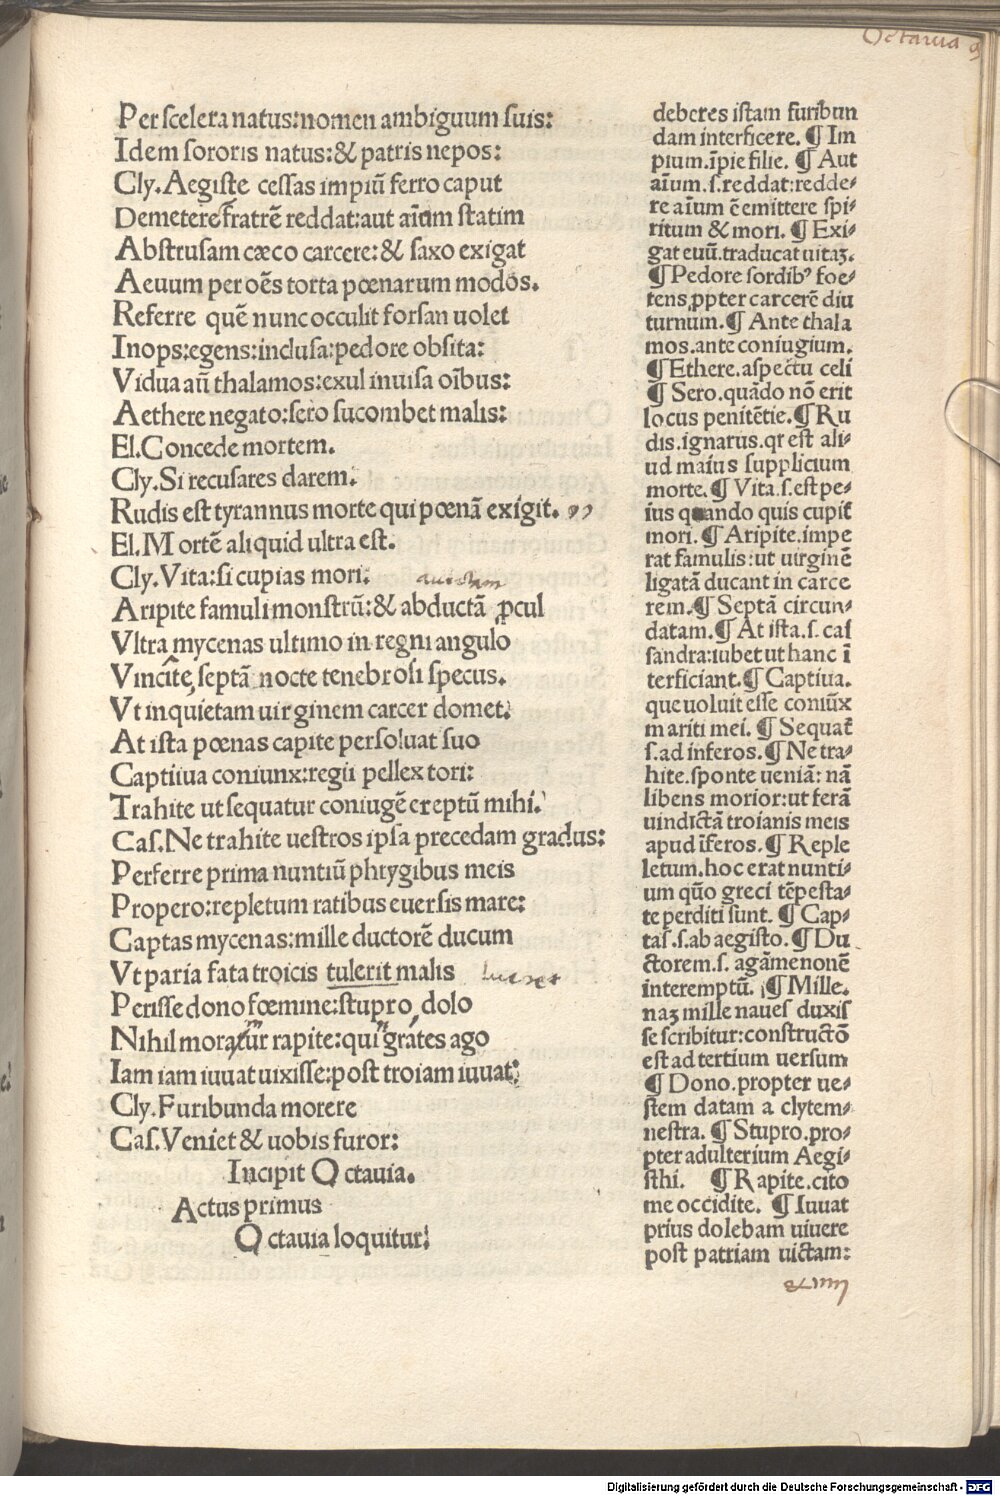 Octavia 9
Per scelera natus:nomen ambiguum suis:
Idem sororis natus:& patris nepos:
Cly.Aegiste cessas impiū ferro caput
Demetere fratrē reddat:aut aīam statim
Abstrusam cæco carcere:& saxo exigat
Aeuum per oēs torta pœnarum modos.
Referre quē nunc occulit forsan uolet
Inops:egens:inclusa:pedore obsita:
Vidua aū thalamos:exul inuisa oībus:
Aethere negato:sero sucombet malis:
El.Concede mortem.
Cly.Si recusares darem.
Rudis est tyrannus morte qui pœnā exigit.
El.Mortē aliquid ultra est.
Cly.Vita:si cupias mori:
Aripite famuli monstrū:& abductā ꝓcul
Vltra mycenas ultimo in regni angulo
Vincite septā nocte tenebrosi specus.
Vt inquietam uirginem carcer domet.
At ista pœnas capite persoluat suo
Captiua coniunx:regii pellex tori:
Trahite ut sequatur coniugē ereptū mihi.
Cas.Ne trahite uestros ipsa precedam gradus:
Perferre prima nuntiū phrygibus meis
Propero:repletum ratibus euersis mare:
Captas mycenas:mille ductorē ducum
Vt paria fata troicis tulerit malis lueret
Perisse dono fœmine:stupro dolo
Nihil moratur rapite:qui grates ago
Iam iam iuuat uixisse:post troiam iuuat:
Cly.Furibunda morere
Cas.Veniet & uobis furor:
Incipit Octauia.
Actus primus
Octauia loquitur:
deberes istam furibun
dam interficere. ¶ Im
pium.īpie filie. ¶ Aut
aīum.s.reddat:redde⸗
re aīum ē emittere spi⸗
ritum & mori. ¶ Exi⸗
gat euū.traducat uitaꝫ.
¶ Pedore sordibꝰ foe⸗
tens ꝓpter carcerē diu
turnum.¶ Ante thala
mos.ante coniugium.
¶ Ethere.aspectu celi
¶ Sero.quādo nō erit
locus penitētie.¶ Ru
dis.ignarus.qr est ali⸗
ud maius supplicium
morte.¶ Vita.s.est pe⸗
ius quando quis cupit
mori.¶ Aripite.impe
rat famulis:ut uirginē
ligatā ducant in carce
rem.¶ Septā circun⸗
datam.¶ At ista.s.cas
sandra:iubet ut hanc ī
terficiant.¶ Captiua.
que uoluit esse coniūx
mariti mei. ¶ Sequat̄
s.ad inferos.¶ Ne tra⸗
hite.sponte ueniā: nā
libens morior:ut ferā
uindictā troianis meis
apud īferos.¶ Reple
letum.hoc erat nunti⸗
um qūo greci tēpesta⸗
te perditi sunt. ¶ Cap⸗
tas.s.ab aegisto.¶ Du
ctorem.s. agāmenonē
interemptū. ¶ Mille.
naꝫ mille naues duxis
se scribitur:constructō
est ad tertium uersum
¶ Dono.propter ue⸗
stem datam a clytem⸗
nestra. ¶ Stupro.pro⸗
pter adulterium Aegi⸗
sthi. ¶ Rapite.cito
me occidite. ¶ Iuuat
prius dolebam uiuere
post patriam uictam:
& iiii
Digitalisierung gefördert durch die Deutsche Forschungsgemeinschaft - DFG